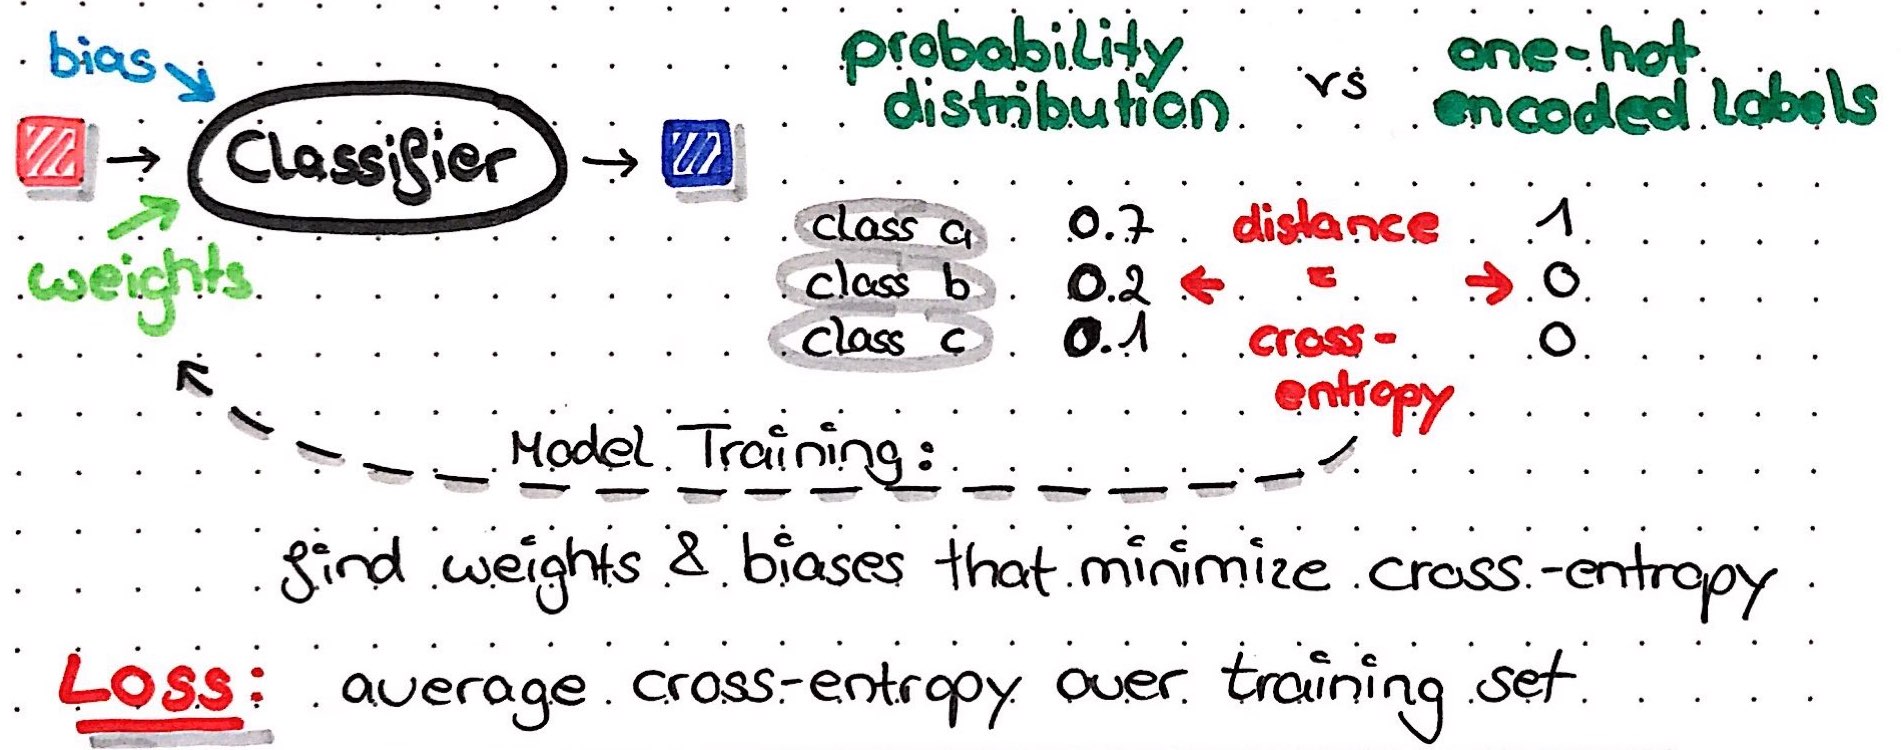 bias
Classifier
weights
probability
distribution
vs
one-hot
encoded labels
class a 0.7 distance 1
class b 0.2 = 0
class c 0.1 cross- 0
entropy
Model Training:
find weights & biases that minimize cross-entropy
Loss: average cross-entropy over training set